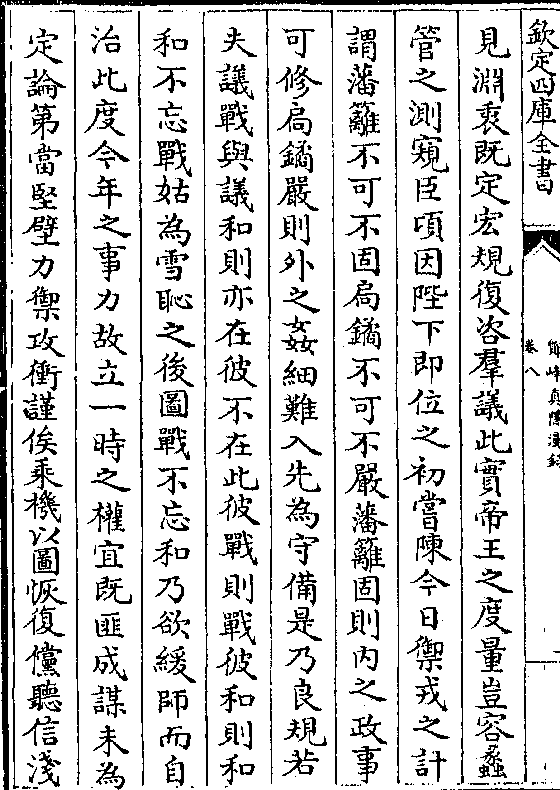 欽定四庫全書
卷八
見淵衷既定宏規復咨羣議此實帝王之度量豈容蠡
管之測窺臣頃因陛下即位之初嘗陳今日禦戎之計
謂藩籬不可不固扄鐍不可不嚴藩籬固則内之政事
可修扄鐍嚴則外之姦細難入先為守備是乃良規若
夫議戰與議和則亦在彼不在此彼戰則戰彼和則和
和不忘戰姑為雪恥之後圖戰不忘和乃欲緩師而自
治此度今年之事力故立一時之權宜既匪成謀未為
定論第當堅壁力禦攻衝謹俟乘機以圖恢復儻聽信淺